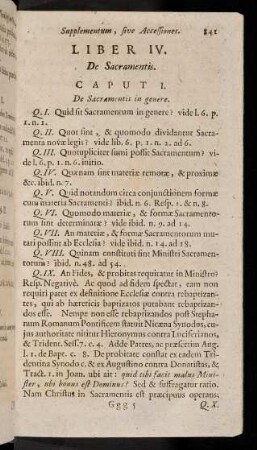 Supplementum, sive Accessiones. 841
LIBER IV.
De Sacramentis.
CAPUT I.
De Sacramentis in genere.
Q. I. Quid sit Sacramentum in genere? vide l. 6. p.
1. n. 1.
Q. II. Quot sint, & quomodo dividantur Sacra-
menta novæ legis? vide lib. 6. p. 1. n. 2. ad 6.
Q. III. Quotupliciter sumi possit Sacramentum? vi-
de l. 6. p. 1. n. 6. initio.
Q. IV. Quænam sint materiæ remotæ, & proximæ
&c. ibid. n. 7.
Q. V. Quid notandum circa conjunctionem formæ
cum materia Sacramenti? ibid. n. 6. Resp. 1. & n. 8.
Q. VI. Quomodo materiæ, & formæ Sacramento-
rum sint determinatæ? vide ibid. n. 9. ad 14.
Q. VII. An materiæ, & formæ Sacramentorum mu-
tari possint ab Ecclesia? vide ibid. n. 14. ad 18.
Q. VIII. Quinam constituti sint Ministri Sacramen-
torum? ibid. n. 48. ad 54.
Q. IX. An Fides, & probitas requiratur in Ministro?
Resp. Negativè. Ac quod ad fidem spectat, eam non
requiri patet ex definitione Ecclesiæ contra rebaptizan-
tes, qui ab hæreticis baptizatos putabant rebaptizan-
dos esse. Nempe non esse rebaptizandos post Stepha-
num Romanum Pontificem statuit Nicæna Synodus, cu-
jus authoritate nititur Hieronymus contra Luciferianos,
& Trident. Sess. 7. c. 4. Adde Patres, ac præsertim Aug.
l. 1. de Bapt. c. 8. De probitate constat ex eadem Tri-
dentina Synodo c. & ex Augustino contra Donatistas, &
Tract. 5. in Joan. ubi ait: quid tibi facit malus Mini-
ster, ubi bonus est Dominus? Sed & suffragatur ratio.
Nam Christus in Sacramentis est præcipuus operans.
Ggg 5 Q. X.